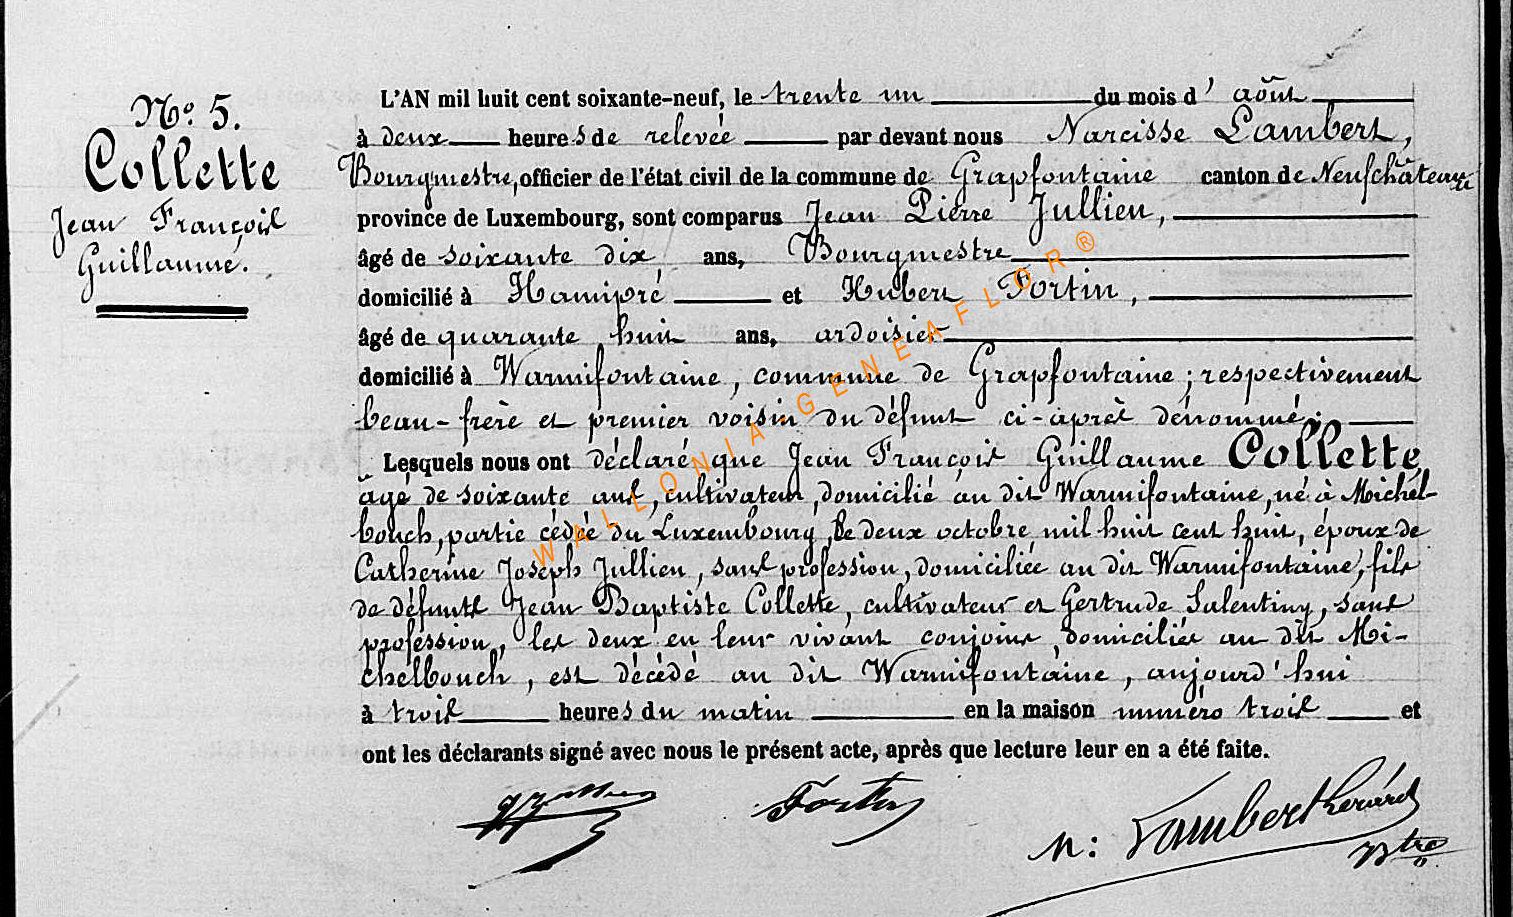 N° 5.
Collette
Jean François
Guillaume.
L'AN mil huit cent soixante-neuf, le trente un du mois d'août
à deux heures de relevée par devant nous Narcisse Lambert,
Bourgmestre, officier de l'état civil de la commune de Grapfontaine canton de Neufchâteau
province de Luxembourg, sont comparus Jean Pierre Jullien,
âgé de soixante dix ans, Bourgmestre
domicilié à Hamipré et Hubert Fortin,
âgé de quarante huit ans, ardoisier
domicilié à Warmifontaine, commune de Grapfontaine; respectivement
beau-frère et premier voisin du défunt ci-après dénommé.
Lesquels nous ont déclaré que Jean François Guillaume Collette
âgé de soixante ans, cultivateur, domicilié au dit Warmifontaine, né à Michel-
bouch, partie cédée du Luxembourg, le deux octobre mil huit cent huit, époux de
Catherine Joseph Jullien, sans profession, domiciliée au dit Warmifontaine, fils
de défunts Jean Baptiste Collette, cultivateur et Gertrude Salentiny, sans
profession, les deux en leur vivant conjoins, domiciliés au dit Mi-
chelbouch, est décédé au dit Warmifontaine, aujourd'hui
à trois heures du matin en la maison numéro trois et
ont les déclarants signé avec nous le présent acte, après que lecture leur en a été faite.
Fortin
N: Lambert
WALLONIA-GENEAFLOR®